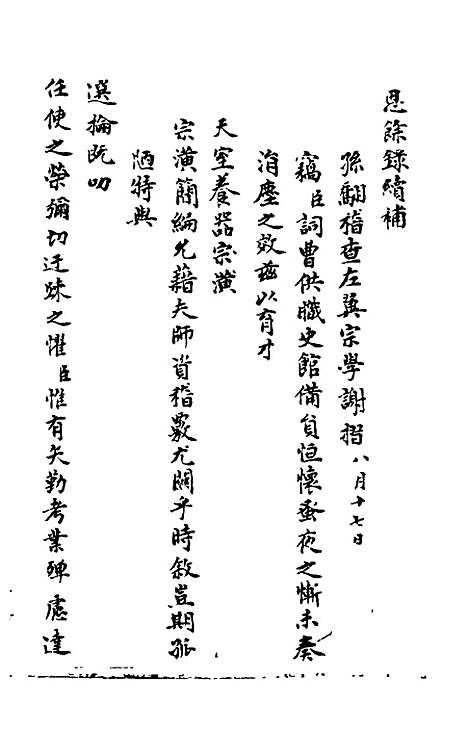 恩餘錄續補
孫翽稽查左翼宗學謝摺八月十七日
竊臣詞曹供職史館備員恒懷蚤夜之慚未奏
涓塵之效茲以育才
天室養器宗潢
宗潢蘭綸允藉夫師資稽覈尤關乎時敘豈期孤
陋特與
選掄既叨
任使之榮彌切迂疎之懼臣惟有矢勤考業殫慮達